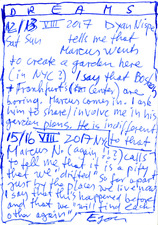 DREAMS
12/13 VIII 2017 Dyan Nispe
Sat Sun tells me that
Marcus wants
to create a garden here
(in NYC?) I say that Boston
+ Frankfurt (on Center) are
boring. Marcus comes in. I ask
him to share / involve me in his
garden plans. He is indifferent
15/16 VIII 2017 NY to that
Marcus N. (again??) calls
to tell me that it is a pity
that we "drifted" so far apart
just for the places we live in
I say that this happened before
and that we will find each
other again"